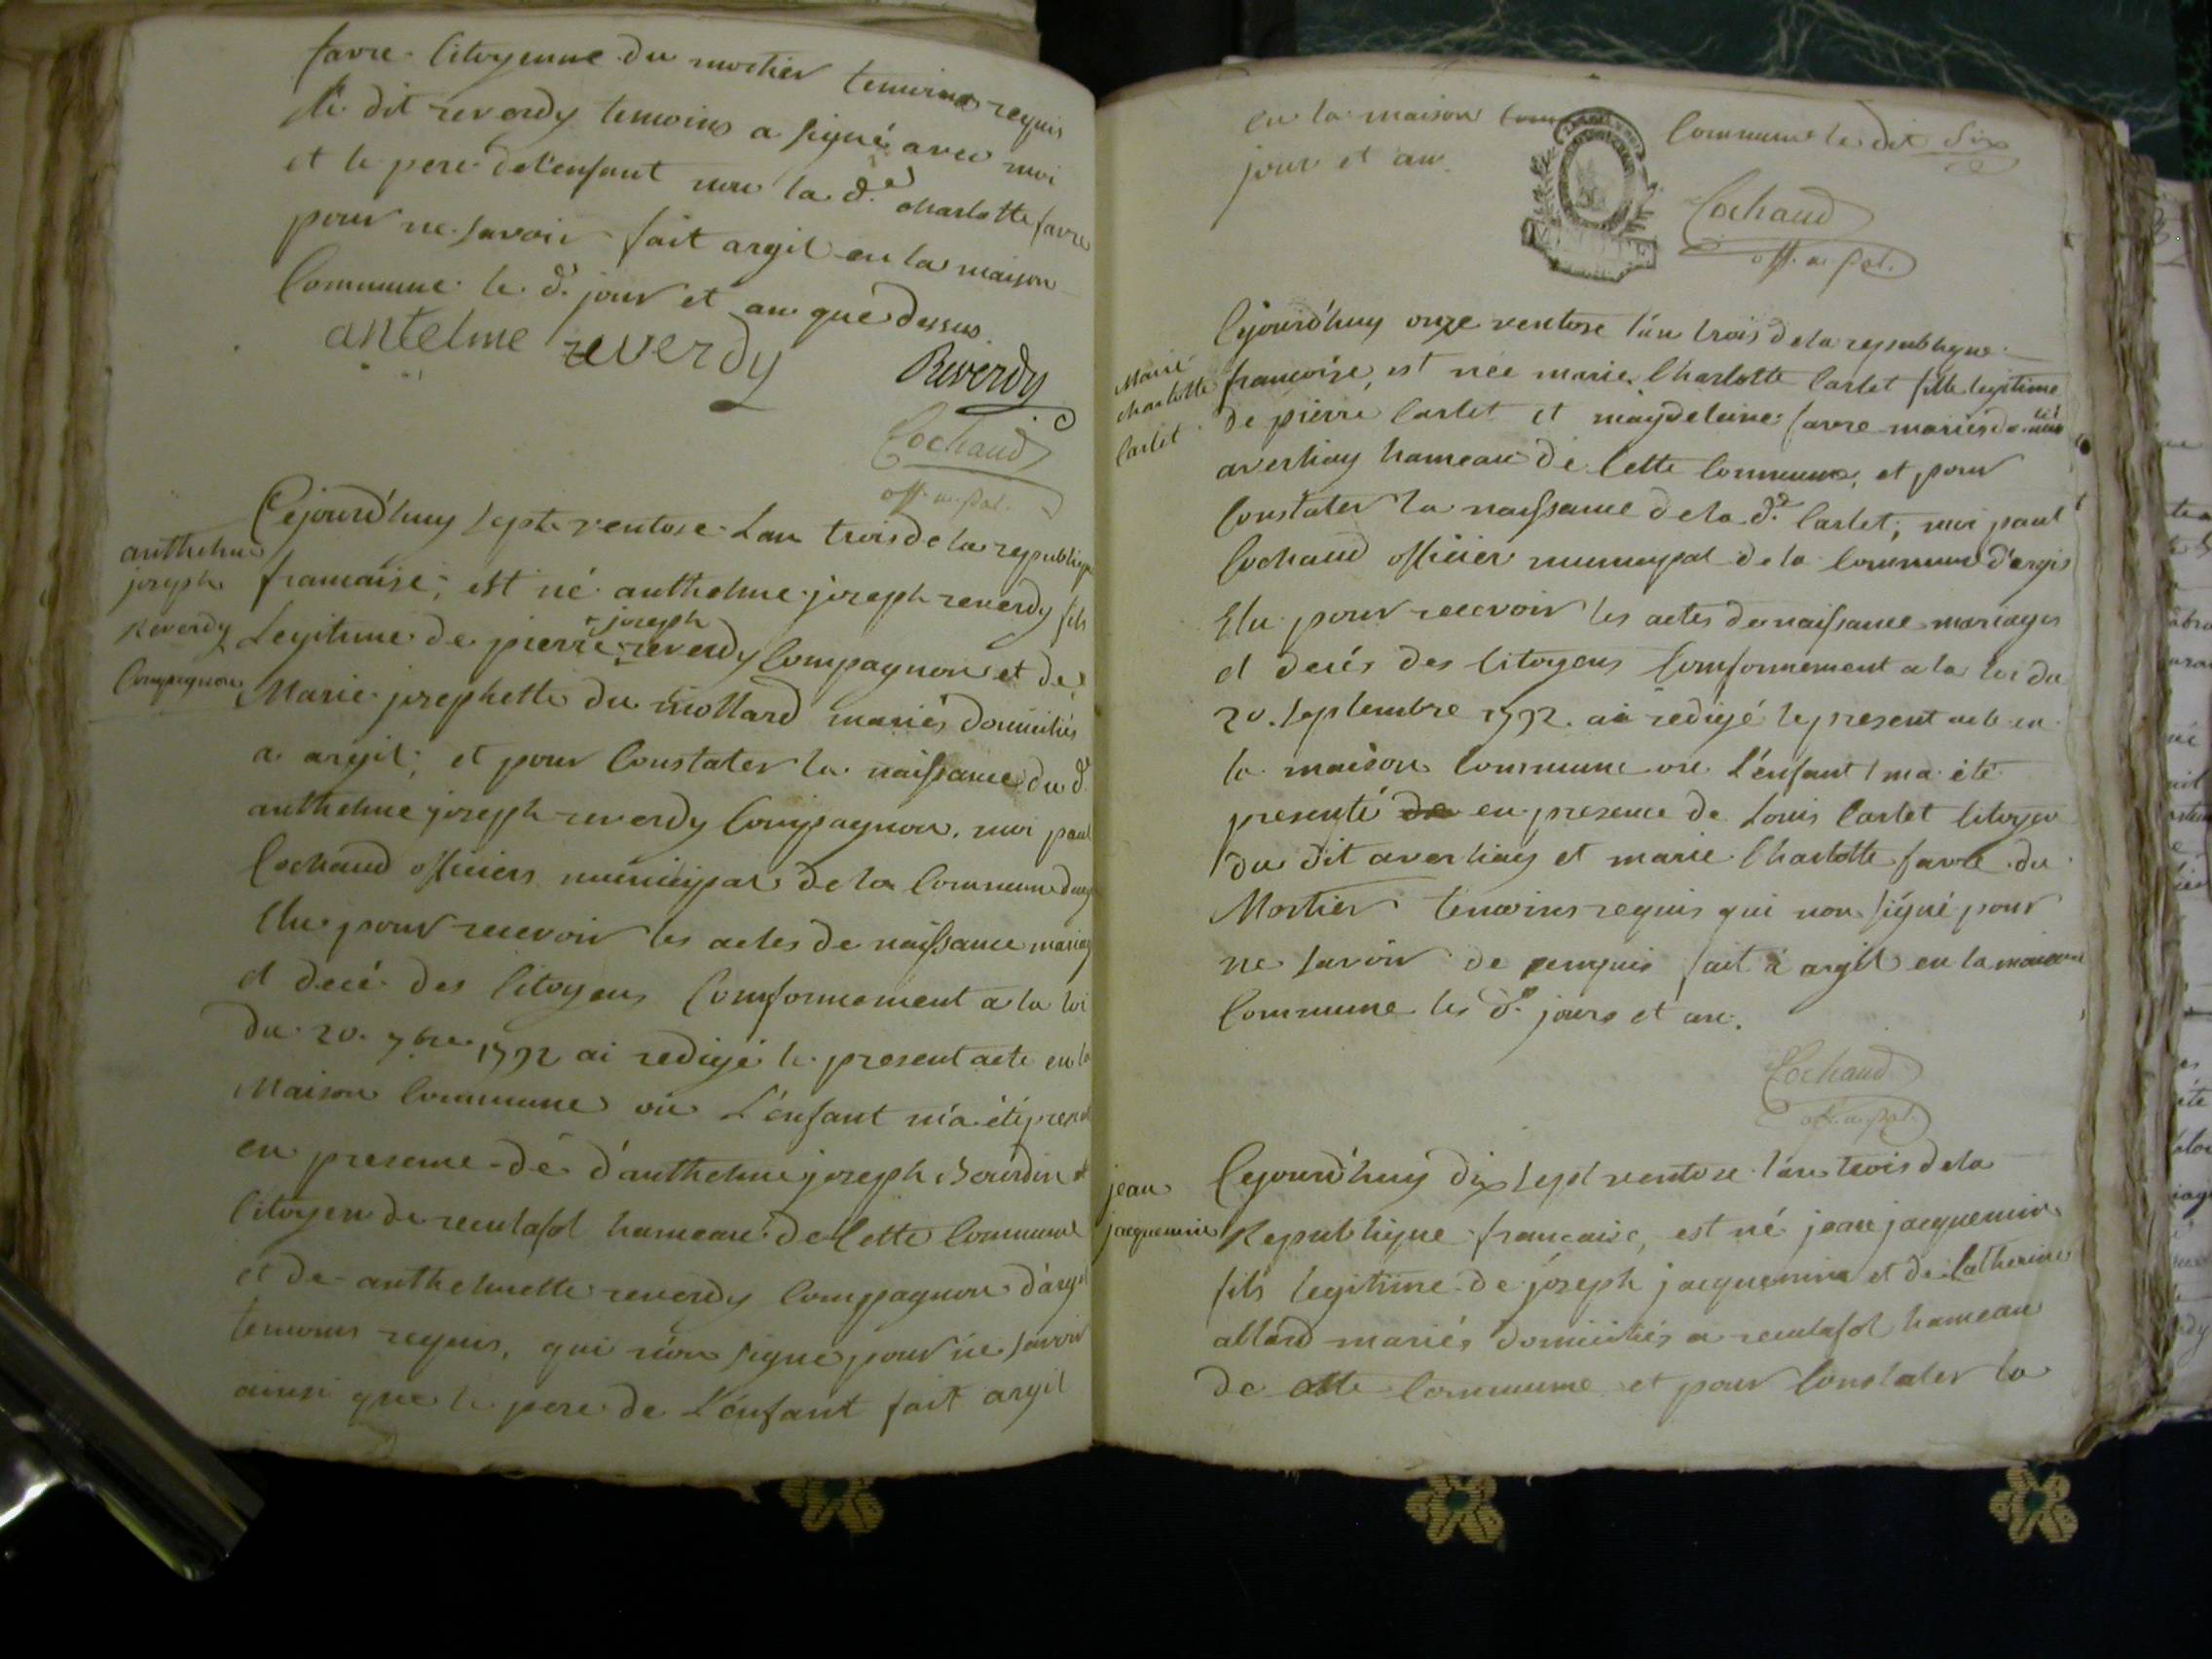 favre Citoyenne du mortier temoins requis
le dit reverdy temoins a signé avec moi
et le pere de l'enfant non la d.e charlotte favre
pour ne savoir fait argil en la maison
Commune le d. jour et an que dessus
antelme reverdy
Reverdy
Cochaud
off. m. pal.
anthelme
joseph
Reverdy
Compagnon
Cejourd'huy sept ventose Lan trois de la republique
francaise, est né anthelme joseph reverdy fils
joseph
Legitime de pierre reverdy Compagnon et de
Marie josephette du mollard mariés domiciliés
a argil, et pour Constater la naissance du d.
anthelme joseph reverdy Compagnon, moi paul
Cochaud officiers municipal de la Commune
Elu pour recevoir les actes de naissance mariag
et decé des Citoyens Comformement a la loi
du 20. 7bre 1792 ai redigé le present acte en la
Maison Commune ou L'enfant m'a été
en presence de d'anthelme joseph Bourdin
Citoyen de reculafol hameau de Cette Commune
et de anthelmette reverdy Compagnon d'argil
temoins requis, qui n'on signe pour ne savoir
ainsi que le pere de L'enfant fait argil
en la maison Commune le dit Six
jour et an.
Cochaud
off. m. pal.
Marie
charlotte
Carlet
Cejourd'huy onze ventose l'an trois de la republique
francoise, est née marie Charlotte Carlet fille legitime
de pierre Carlet et magdeleine favre mariés
averliay hameau de Cette Commune, et pour
Constater la naissance de la d.e Carlet, moi paul
Cochaud officier municipal de la Commune d'argis
Elu pour recevoir les actes de naissance mariages
et decés des Citoyens Comformement a la loi du
20. Septembre 1792. ai redigé le present acte en
la maison Commune ou L'enfant ma été
presenté de en presence de Louis Carlet Citoyen
du dit averliay et marie Charlotte favre du
Mortier temoins requis qui non signé pour
ne savoir de ce requis, fait à argil en la maison
Commune les d. jours et an.
Cochaud
off. m. pal.
jean
jacquemin
Cejourd'huy dix sept ventose l'an trois de la
Republique francaise, est né jean jacquemin
fils legitime de joseph jacquemin et de Catherine
allard mariés domiciliés a reculafol hameau
de cette Commune et pour Constater la